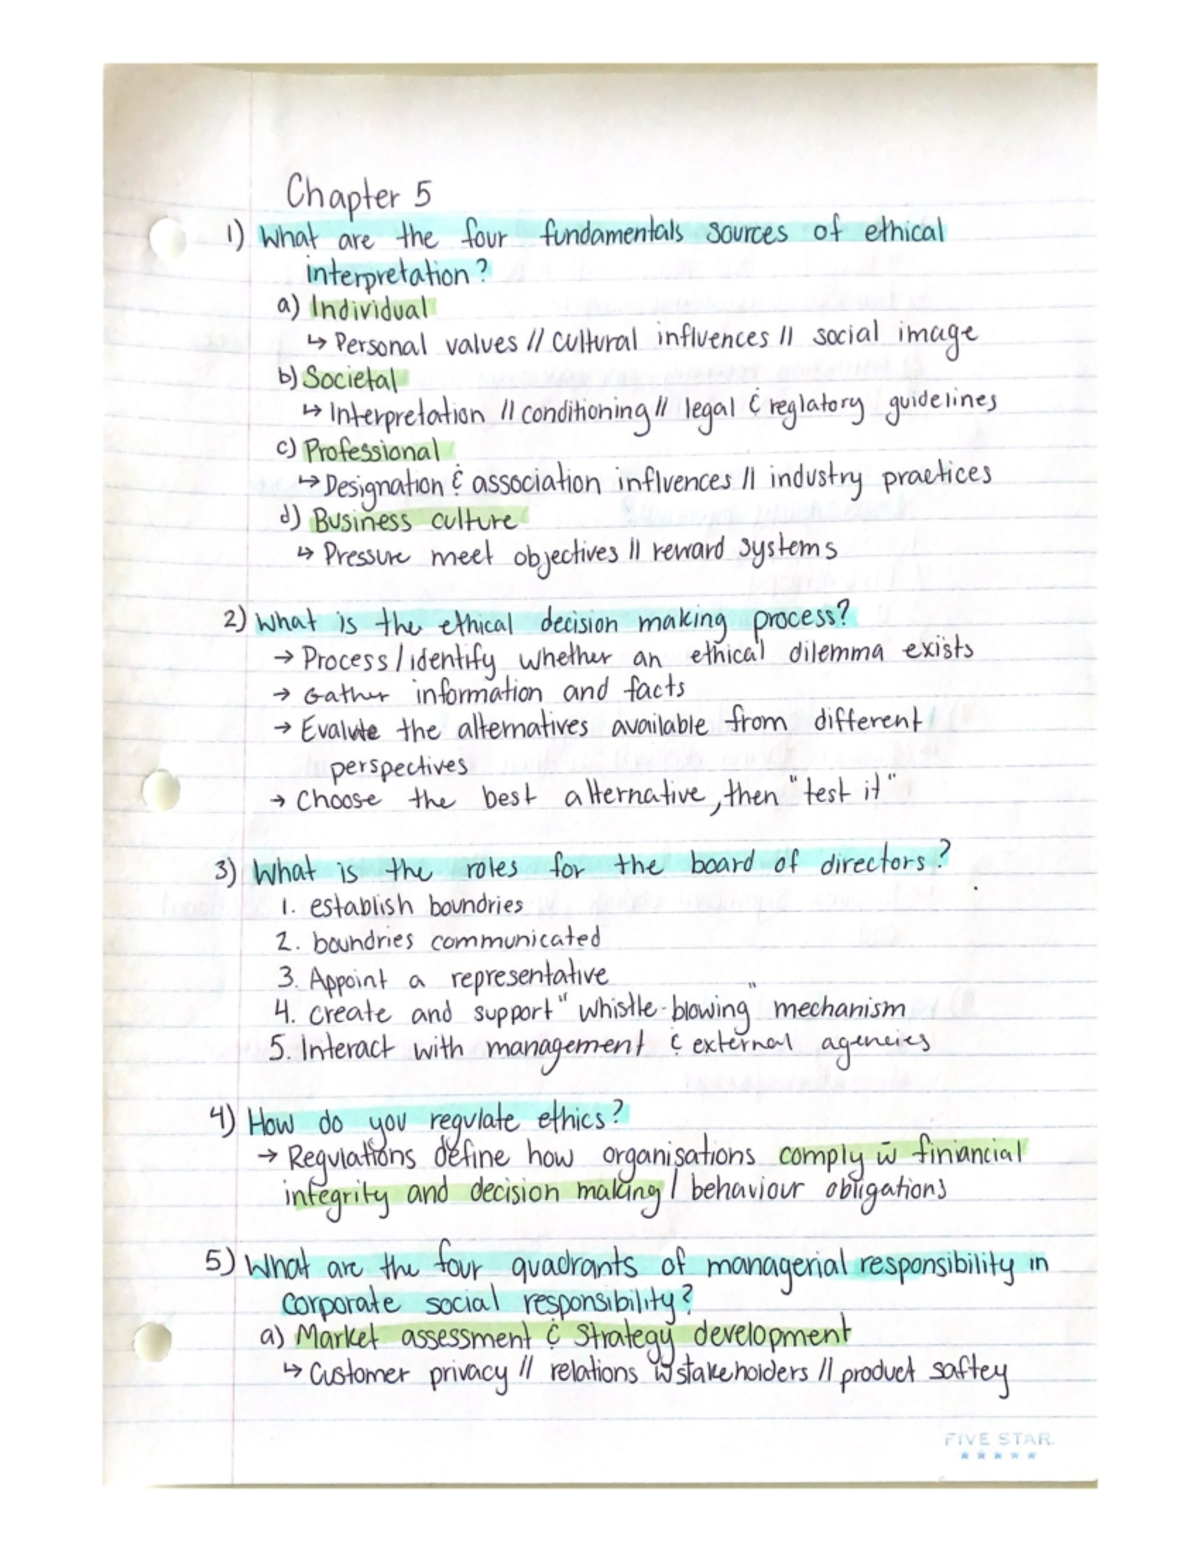 Chapter 5
1) What are the four fundamentals sources of ethical
interpretation?
a) Individual
↳ Personal values // cultural influences // social image
b) Societal
↳ Interpretation // conditioning // legal & reglatory guidelines
c) Professional
↳ Designation & association influences // industry practices
d) Business culture
↳ Pressure meet objectives // reward systems
2) What is the ethical decision making process?
→ Process / identify whether an ethical dilemma exists
→ Gather information and facts
→ Evalute the alternatives available from different
perspectives
→ Choose the best alternative, then "test it"
3) What is the roles for the board of directors?
1. establish boundries
2. boundries communicated
3. Appoint a representative
4. create and support "whistle-blowing" mechanism
5. Interact with management & external agencies
4) How do you regulate ethics?
→ Regulations define how organisations comply w̄ finiancial
integrity and decision making / behaviour obligations
5) What are the four quadrants of managerial responsibility in
corporate social responsibility?
a) Market assessment & strategy development
↳ Customer privacy // relations w̄ stakeholders // product saftey
FIVE STAR
★★★★★